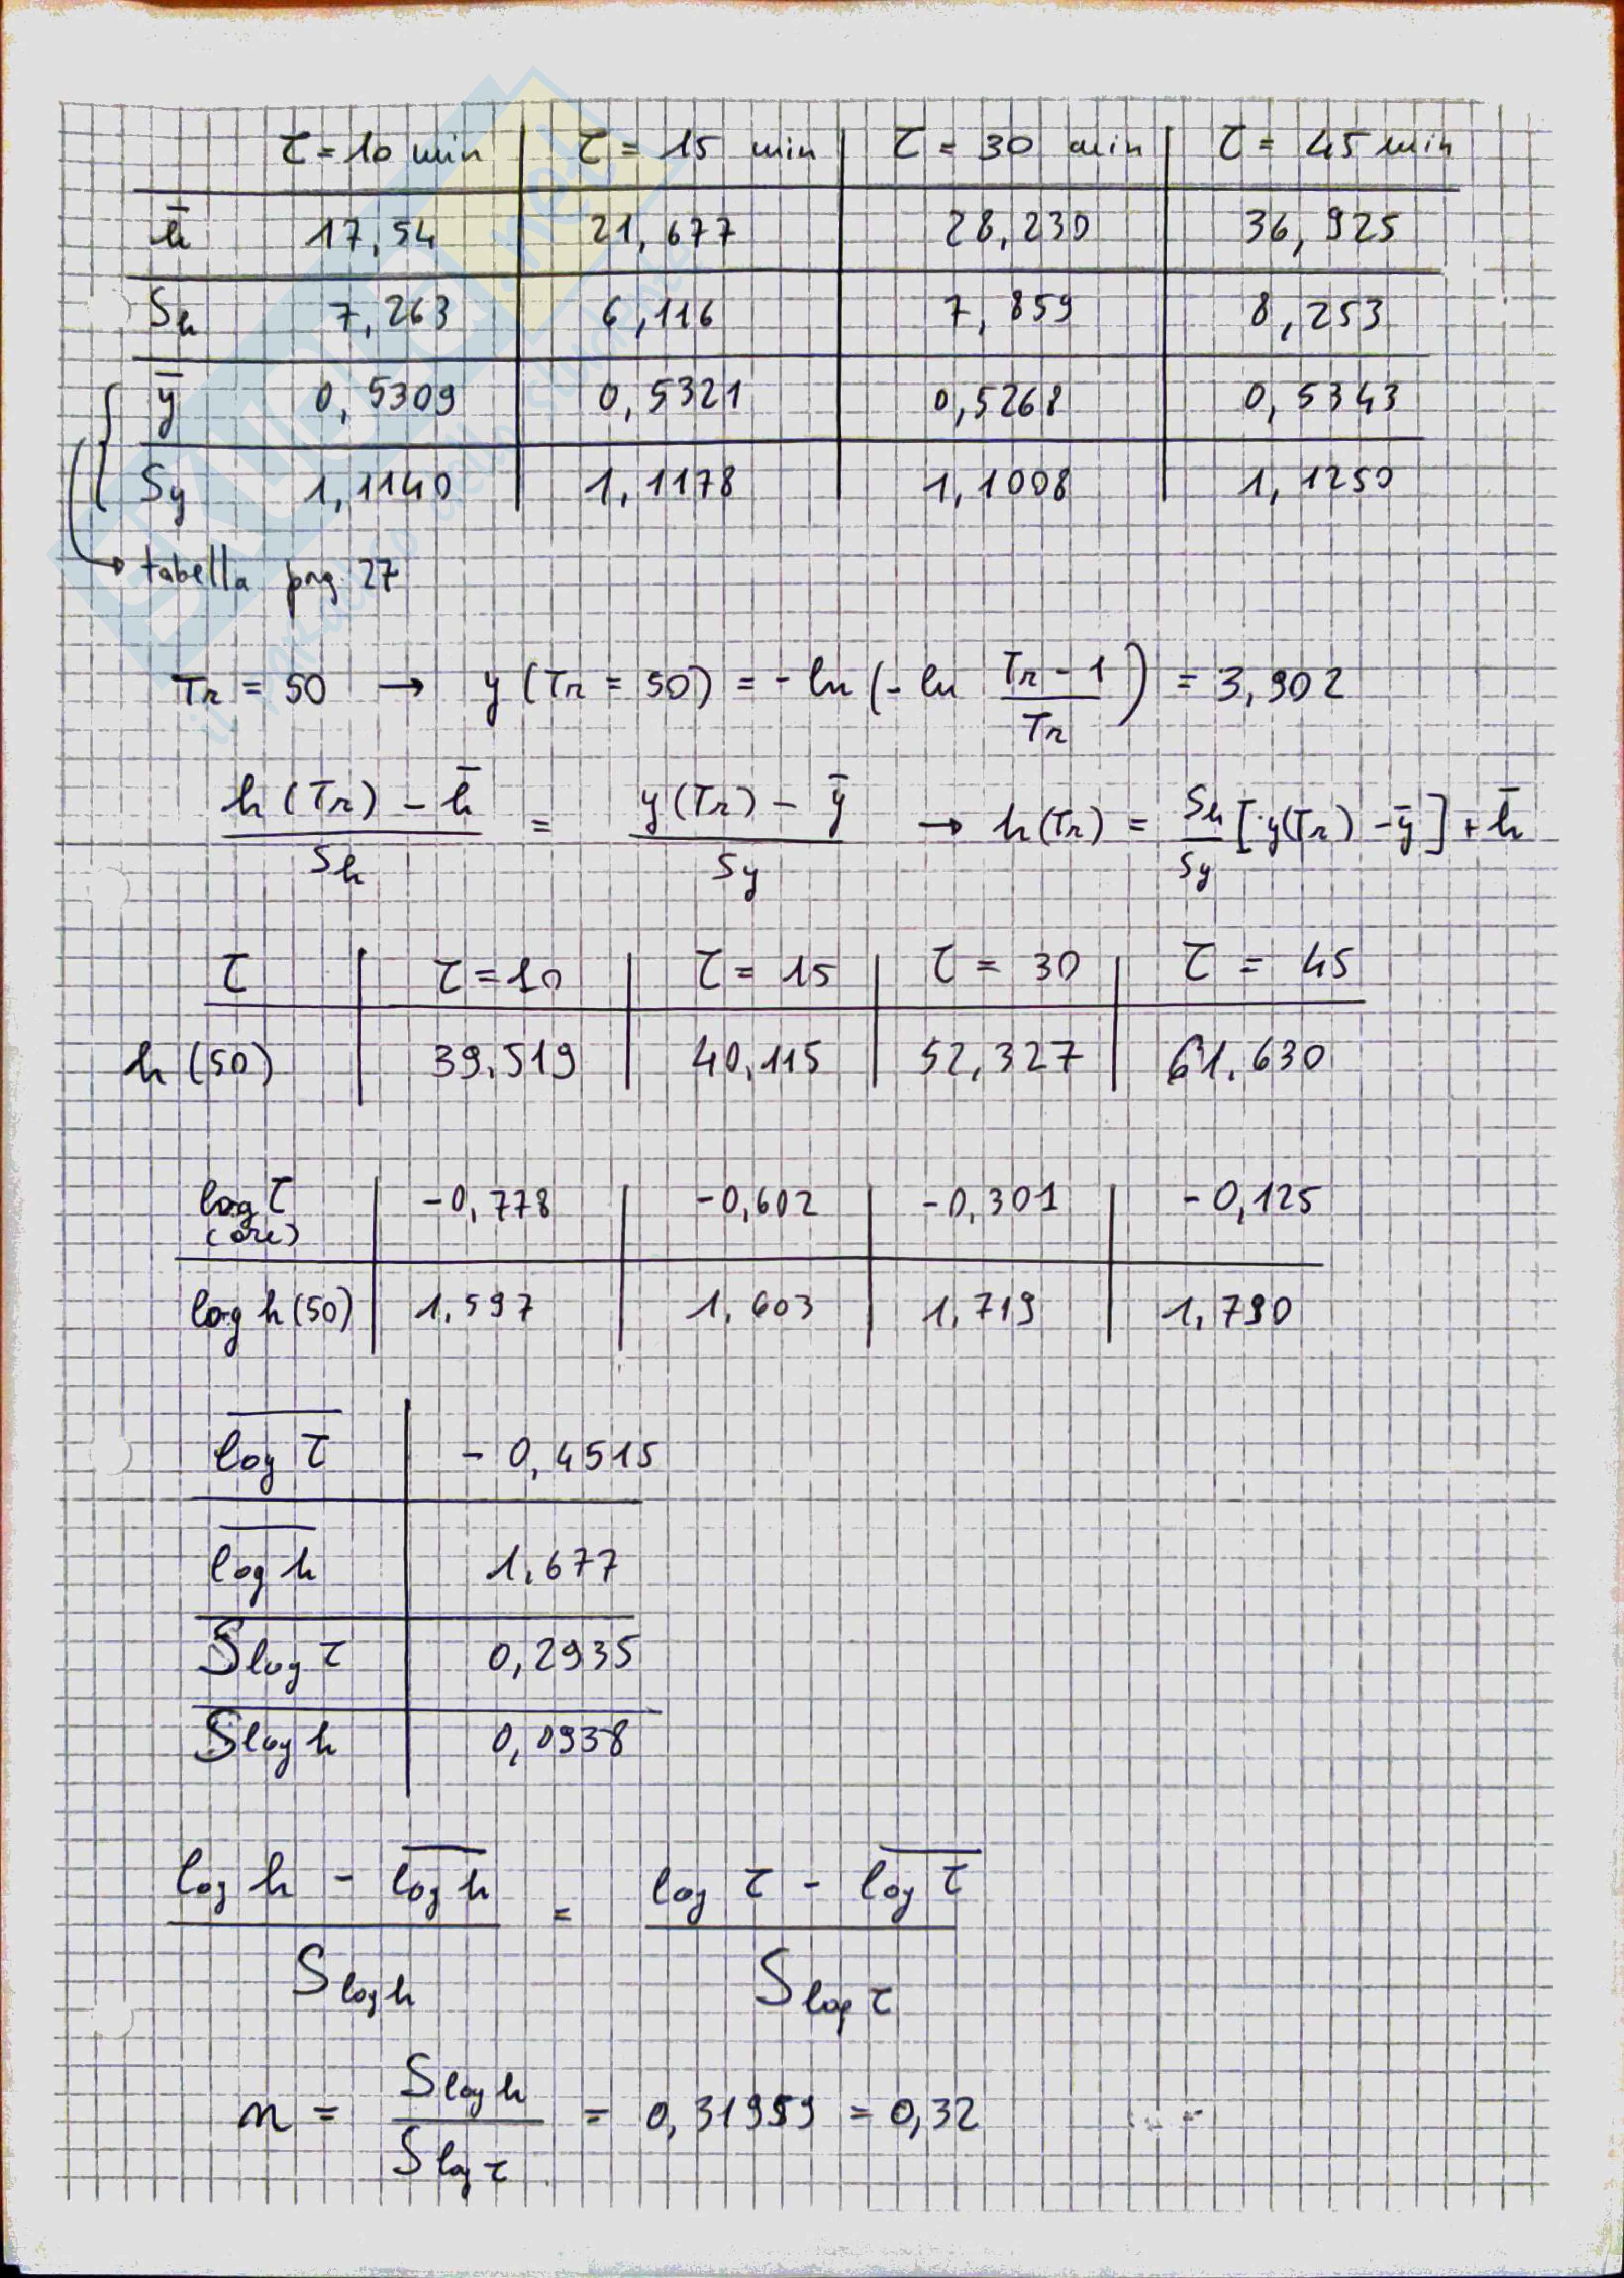 τ = 10 min | τ = 15 min | τ = 30 min | τ = 45 min
h̄ 17,54 | 21,677 | 28,230 | 36,925
Sh 7,263 | 6,116 | 7,859 | 8,253
ȳ 0,5309 | 0,5321 | 0,5268 | 0,5343
Sy 1,1140 | 1,1178 | 1,1008 | 1,1250
→ tabella pag. 27
Tr = 50 → y (Tr = 50) = - ln (- ln (Tr - 1)/Tr) = 3,902
(h (Tr) - h̄)/Sh = (y (Tr) - ȳ)/Sy → h (Tr) = Sh/Sy [y(Tr) - ȳ] + h̄
τ | τ = 10 | τ = 15 | τ = 30 | τ = 45
h (50) | 39,519 | 40,115 | 52,327 | 61,630
log τ (ore) | -0,778 | -0,602 | -0,301 | -0,125
log h (50) | 1,597 | 1,603 | 1,719 | 1,790
log τ | - 0,4515
log h | 1,677
Slog τ | 0,2935
Slog h | 0,0938
(log h - log h)/Slog h = (log τ - log τ)/Slog τ
n = Slog h/Slog τ = 0,31959 = 0,32